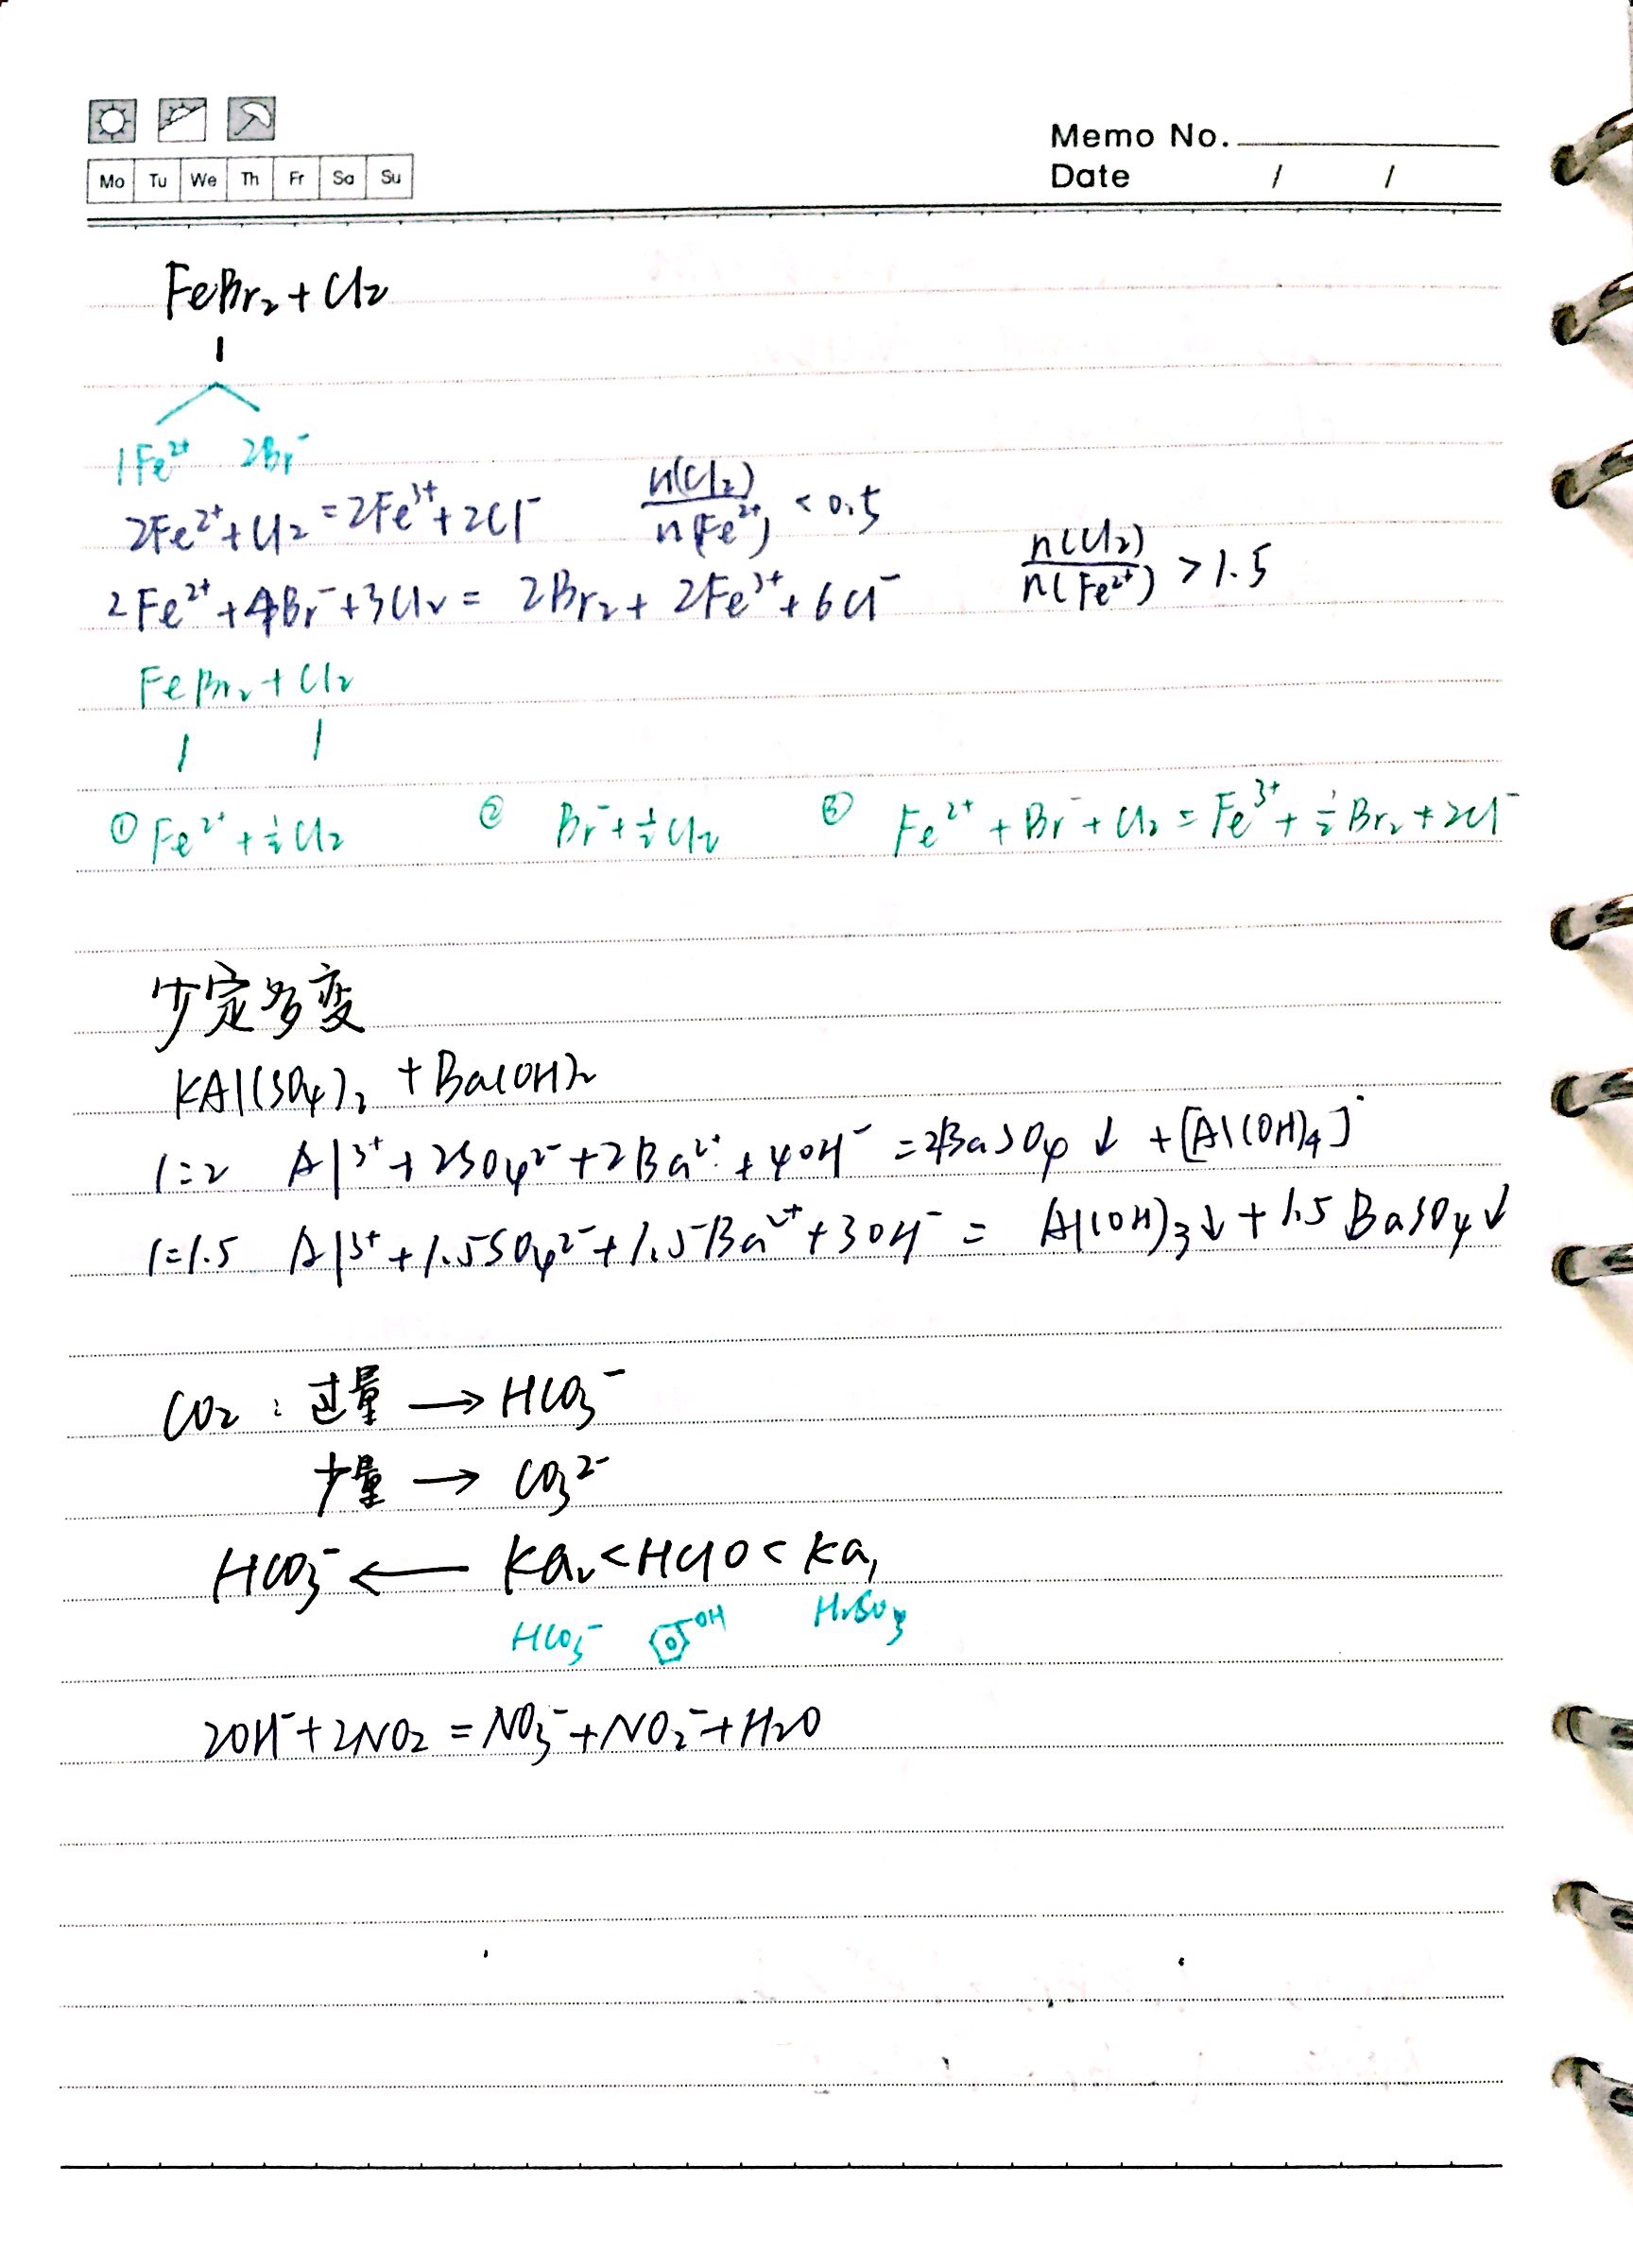 Memo No.
Mo Tu We Th Fr Sa Su
Date / /
FeBr₂+Cl₂
1
1Fe²⁺ 2Br⁻
2Fe²⁺+Cl₂=2Fe³⁺+2Cl⁻ n(Cl₂)/n(Fe²⁺) <0.5
2Fe²⁺+4Br⁻+3Cl₂= 2Br₂+ 2Fe³⁺+6Cl⁻ n(Cl₂)/n(Fe²⁺) >1.5
FeBr₂+Cl₂
1 1
① Fe²⁺+½Cl₂ ② Br⁻+½Cl₂ ③ Fe²⁺+Br⁻+Cl₂=Fe³⁺+½Br₂+2Cl⁻
少定多变
KAl(SO₄)₂ +Ba(OH)₂
1:2 Al³⁺+2SO₄²⁻+2Ba²⁺+4OH⁻=2BaSO₄↓+[Al(OH)₄]⁻
1:1.5 Al³⁺+1.5SO₄²⁻+1.5Ba²⁺+3OH⁻= Al(OH)₃↓+1.5BaSO₄↓
CO₂:过量→HCO₃⁻
少量→CO₃²⁻
HCO₃⁻← Ka₂<HClO<Ka₁
HCO₃⁻ OH H₂CO₃
2OH⁻+2NO₂=NO₃⁻+NO₂⁻+H₂O